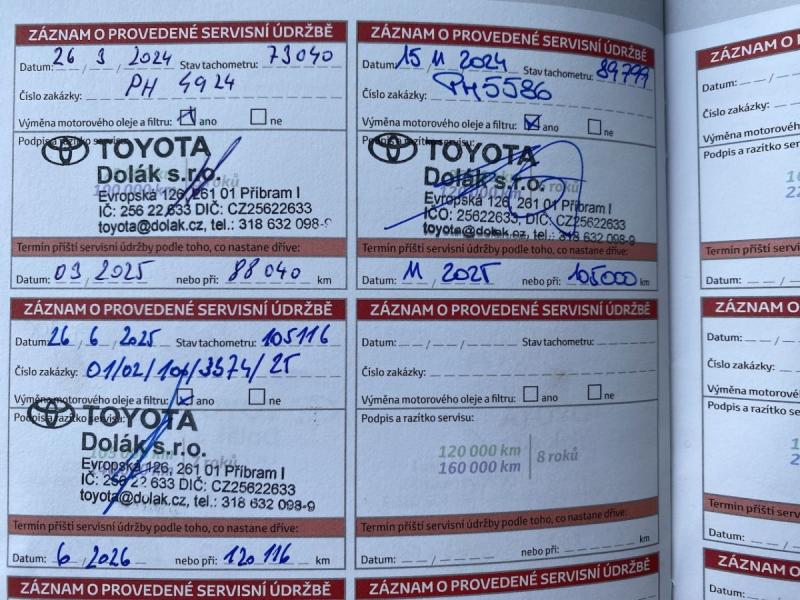 ZÁZNAM O PROVEDENÉ SERVISNÍ ÚDRŽBĚ
Datum: 26 / 3 / 2024 Stav tachometru: 73040
PH 4924
Číslo zakázky:
Výměna motorového oleje a filtru: ano ne
Podpis a razítko servisu:
TOYOTA
Dolák s.r.o.
100 000 km roků
Evropská 126, 261 01 Příbram I
IČ: 256 22 633 DIČ: CZ25622633
toyota@dolak.cz, tel.: 318 632 098-9
Termín příští servisní údržby podle toho, co nastane dříve:
Datum: 03 / 2025 nebo při: 88040 km
ZÁZNAM O PROVEDENÉ SERVISNÍ ÚDRŽBĚ
Datum: 15 / 11 / 2024 Stav tachometru: 89799
Číslo zakázky: PH5586
Výměna motorového oleje a filtru: ano ne
Podpis a razítko servisu:
TOYOTA
Dolák s.r.o.
120 000 km roků
Evropská 126, 261 01 Příbram I
IČO: 25622633, DIČ: CZ25622633
toyota@dolak.cz, tel.: 318 632 098-9
Termín příští servisní údržby podle toho, co nastane dříve:
Datum: 11 / 2025 nebo při: 105000 km
ZÁZNAM O PROVEDENÉ SERVISNÍ ÚDRŽBĚ
Datum: 26 / 6 / 2025 Stav tachometru: 105116
Číslo zakázky: 01/02/ /3574/25
Výměna motorového oleje a filtru: ano ne
Podpis a razítko servisu:
TOYOTA
Dolák s.r.o.
Evropská 126, 261 01 Příbram I
IČ: 256 22 633 DIČ: CZ25622633
toyota@dulak.cz, tel.: 318 632 098-9
Termín příští servisní údržby podle toho, co nastane dříve:
Datum: 6 / 2026 nebo při: 120 116 km
ZÁZNAM O PROVEDENÉ SERVISNÍ ÚDRŽBĚ
Datum: / / Stav tachometru:
Číslo zakázky:
Výměna motorového oleje a filtru: ano ne
Podpis a razítko servisu:
120 000 km
160 000 km
8 roků
Termín příští servisní údržby podle toho, co nastane dříve:
Datum: / nebo při: km
ZÁZNAM O PROVEDENÉ SERVISNÍ ÚDRŽBĚ
ZÁZNAM O PROVEDENÉ SERVISNÍ ÚDRŽBĚ
ZÁZNAM O PROVE
Datum: / /
Číslo zakázky:
Výměna motorového
Podpis a razítko servisu:
Termín příští servisní ú
Datum: /
ZÁZNAM O PROV
Datum: / /
Číslo zakázky:
Výměna motorového
Podpis a razítko servisu
Termín příští servisní
Datum: /
ZÁZNAM O PRO
Datum: